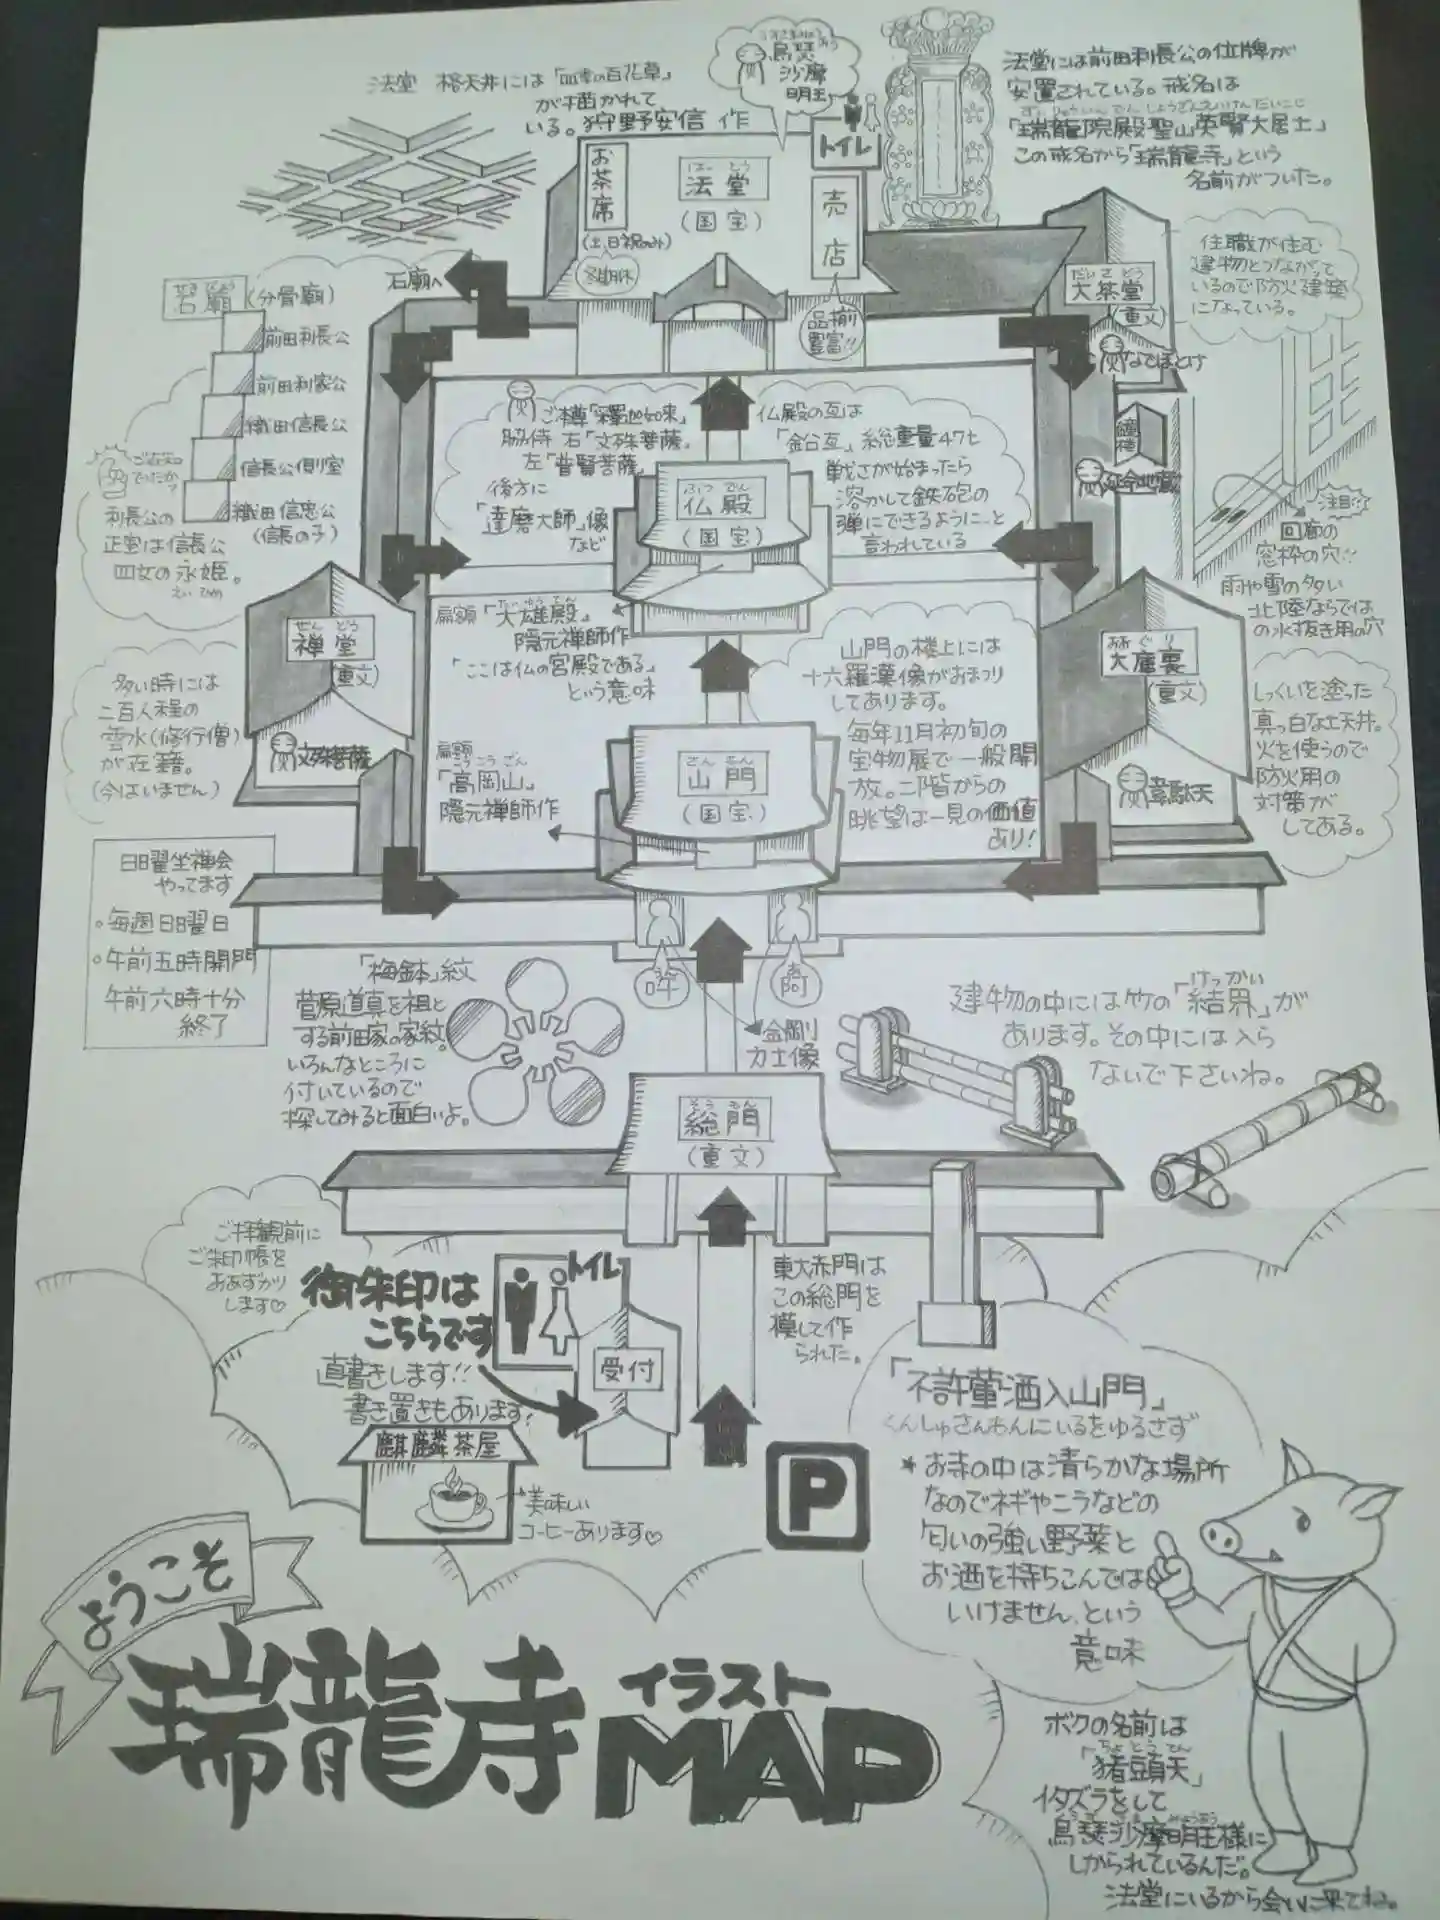 法堂 格天井には「四季の百花草」
が描かれて
いる。狩野安信 作
うすさまみょうおう
烏瑟
沙摩
明王
トイレ
法堂には前田利長公の位牌が
安置されている。戒名は
ずいりゅういんでんしょうざんえいけんだいこじ
「瑞龍院殿聖山英賢大居士」
この戒名から「瑞龍寺」という
名前がついた。
お茶席
(土、日祝のみ)
冬期休
はっとう
法堂
(国宝)
売店
品揃
豊富!!
石廟へ
石廟(分骨廟)
前田利長公
前田利家公
織田信長公
信長公側室
織田信忠公
(信長の子)
ご存知
でしたか?
利長公の
正室は信長公
四女の永姫。
えいひめ
だいさどう
大茶堂
(重文)
なでぼとけ
住職が住む
建物とつながって
いるので防火建築
になっている。
鐘楼
延命地蔵
注目!!
回廊の
窓枠の穴!!
雨や雪の多い
北陸ならでは
の水抜き用の穴
ご本尊「釋迦如来」
脇侍 右「文殊菩薩」
左「普賢菩薩」
後方に
「達磨大師」像
など
ぶつでん
仏殿
(国宝)
仏殿の瓦は
「鉛瓦」総重量47t
戦さが始まったら
溶かして鉄砲の
弾にできるように、と
言われている
扁額「大雄殿」
だいゆうでん
隠元禅師作
「ここは仏の宮殿である」
という意味
山門の楼上には
十六羅漢像がおまつり
してあります。
毎年11月初旬の
宝物展で一般開
放。二階からの
眺望は一見の価値
あり!
ぜんどう
禅堂
(重文)
文殊菩薩
多い時には
二百人程の
雲水(修行僧)
が在籍。
(今はいません)
おおぐり
大庫裏
(重文)
韋駄天
しっくいを塗った
真っ白な天井。
火を使うので
防火用の
対策が
してある。
扁額
こうこうざん
「高岡山」
隠元禅師作
さんもん
山門
(国宝)
吽
阿
金剛
力士像
日曜坐禅会
やってます
。毎週日曜日
。午前五時開門
午前六時十分
終了
「梅鉢」紋
菅原道真を祖と
する前田家の家紋。
いろんなところに
付いているので
探してみると面白いよ。
建物の中には竹の「結界」が
けっかい
あります。その中には入ら
ないで下さいね。
そうもん
総門
(重文)
東大赤門は
この総門を
模して作
られた。
ご拝観前に
ご朱印帳を
おあずかり
します♡
御朱印は
こちらです
直書きします!!
書き置きもあります!
トイレ
受付
麒麟茶屋
美味しい
コーヒーあります♡
P
「不許葷酒入山門」
くんしゅさんもんにいるをゆるさず
★お寺の中は清らかな場所
なのでネギやニラなどの
匂いの強い野菜と
お酒を持ちこんでは
いけません、という
意味
ボクの名前は
ちょとうてん
「猪頭天」
イタズラをして
うすさまみょうおう
烏瑟沙摩明王様に
しかられているんだ。
法堂にいるから会いに来てね。
ようこそ
瑞龍寺イラスト
MAP